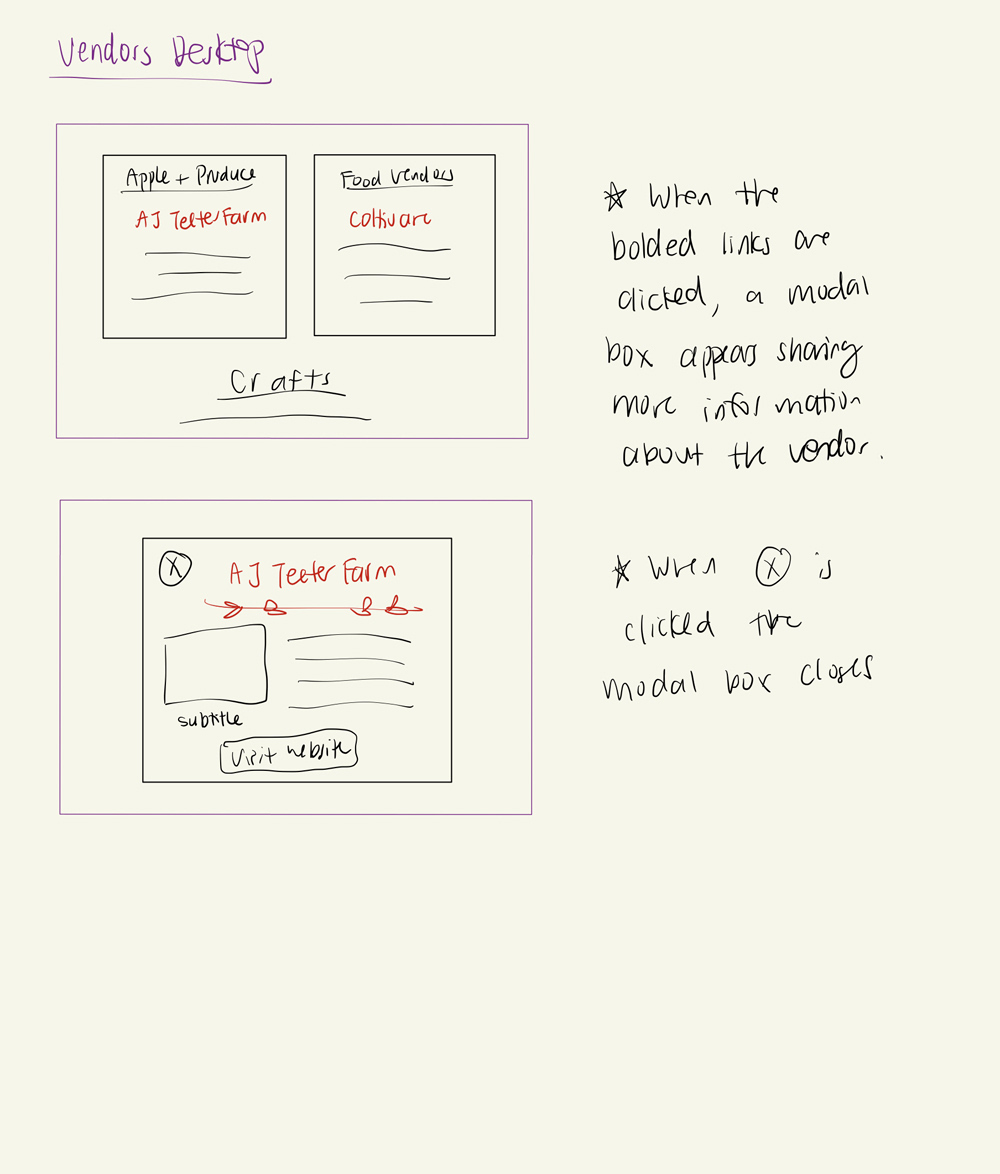 Vendors Desktop
Apple + Produce
AJ Teeter Farm
Food Vendors
Coltivare
Crafts
* When the
bolded links are
clicked, a modal
box appears sharing
more information
about the vendor.
X
AJ Teeter Farm
subtitle
Visit website
* When X is
clicked the
modal box closes